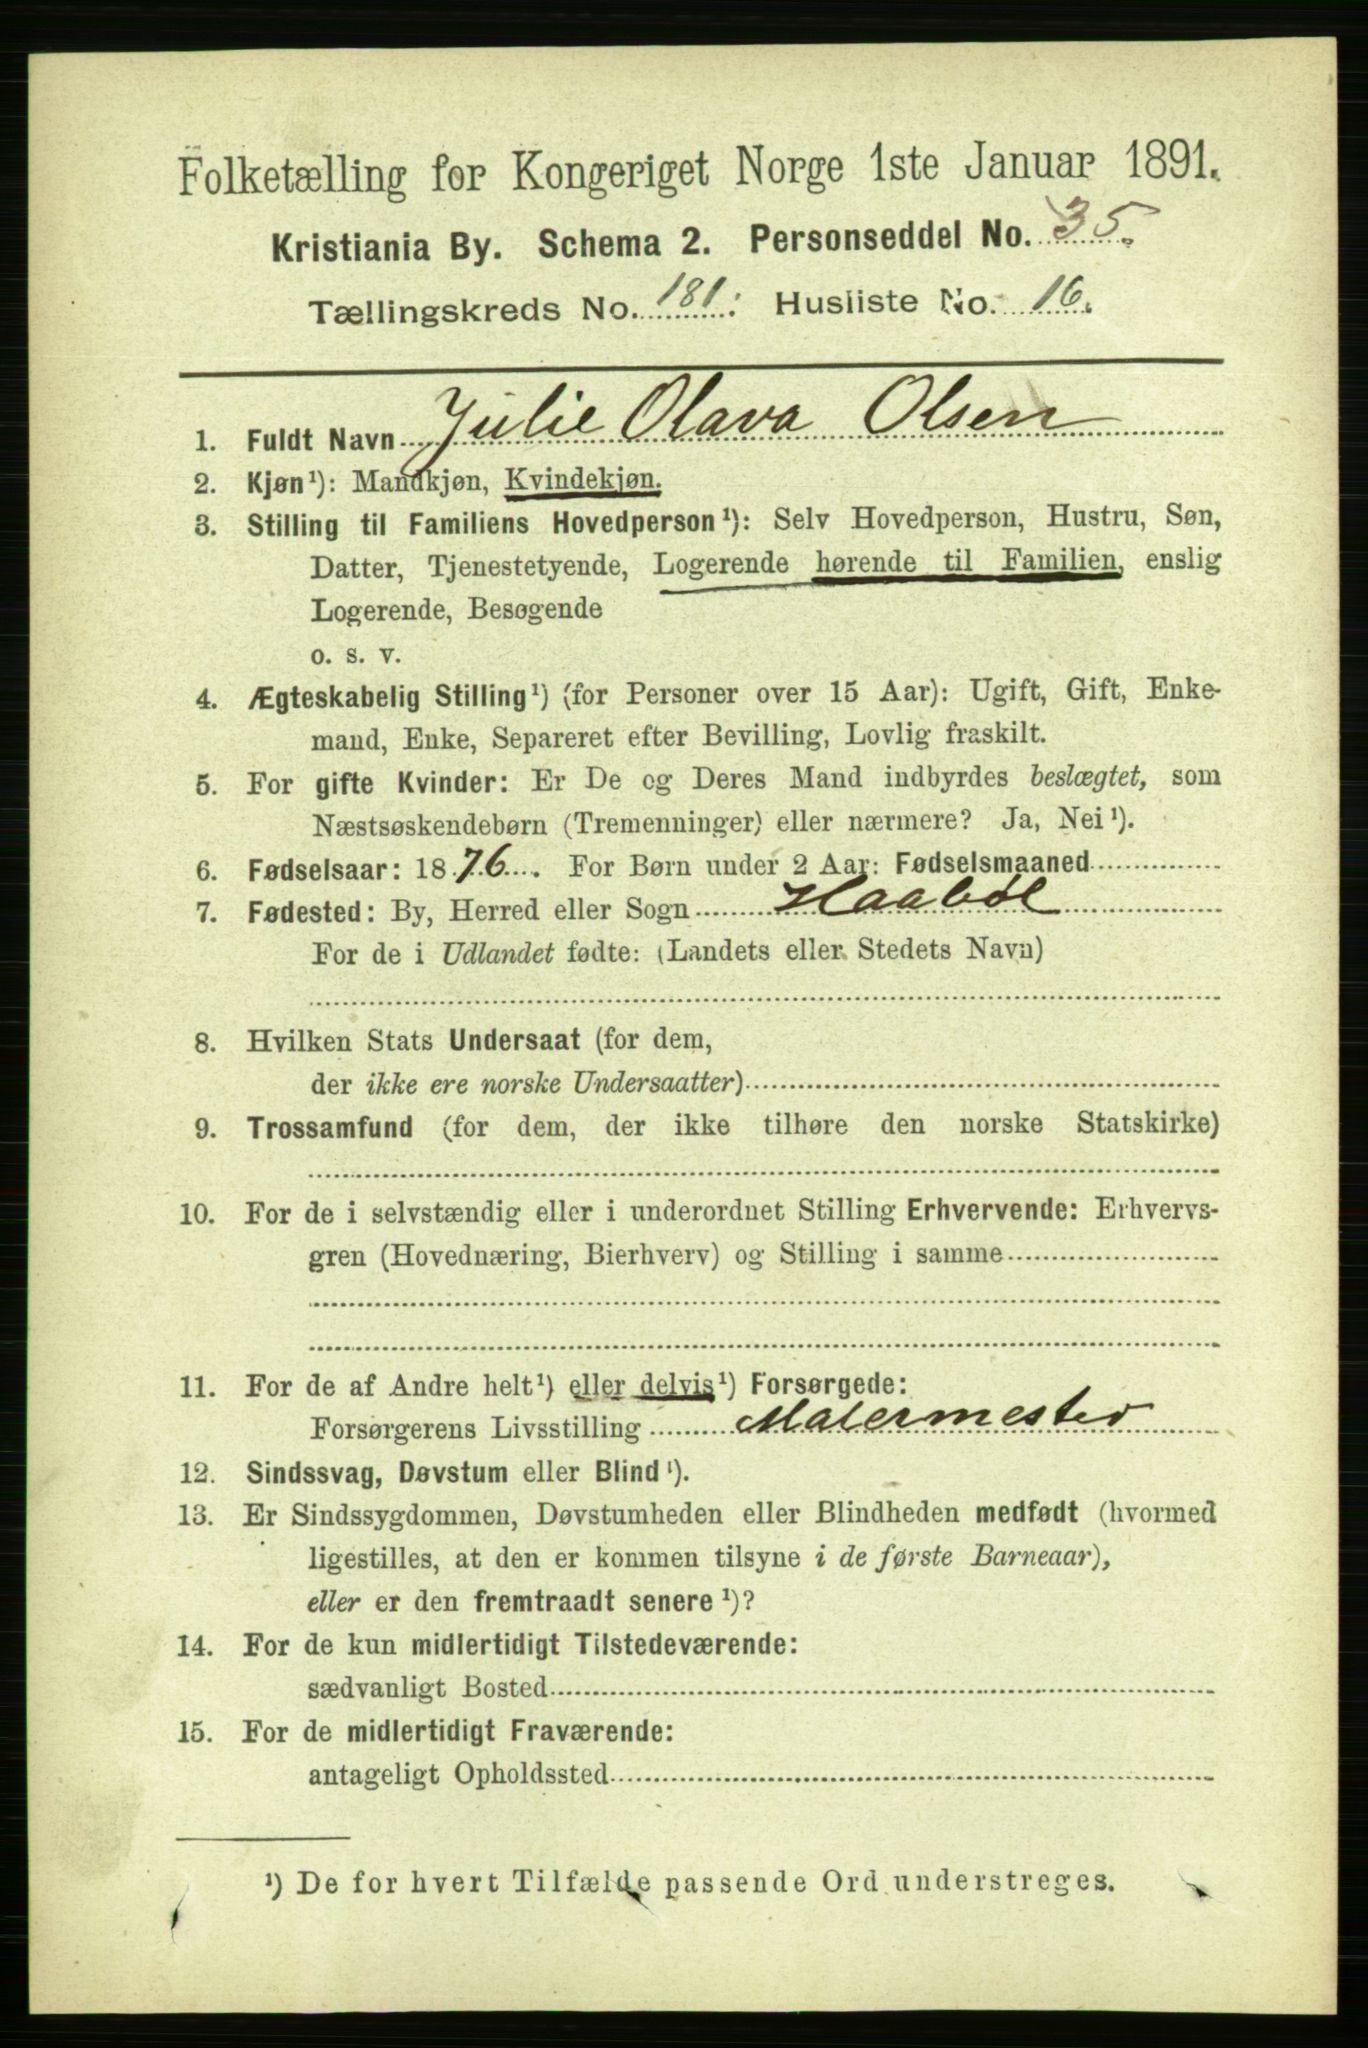 Folketælling for Kongeriget Norge 1ste Januar 1891.
Kristiania By. Schema 2. Personseddel No. 35.
Tællingskreds No. 181: Husliste No. 16.
1. Fuldt Navn Julie Olava Olsen
2. Kjøn¹): Mandkjøn, Kvindekjøn.
3. Stilling til Familiens Hovedperson¹): Selv Hovedperson, Hustru, Søn,
Datter, Tjenestetyende, Logerende hørende til Familien, enslig
Logerende, Besøgende
o. s. v.
4. Ægteskabelig Stilling¹) (for Personer over 15 Aar): Ugift, Gift, Enke-
mand, Enke, Separeret efter Bevilling, Lovlig fraskilt.
5. For gifte Kvinder: Er De og Deres Mand indbyrdes beslægtet, som
Næstsøskendebørn (Tremenninger) eller nærmere? Ja, Nei¹).
6. Fødselsaar: 1876. For Børn under 2 Aar: Fødselsmaaned
7. Fødested: By, Herred eller Sogn Haabøl
For de i Udlandet fødte: (Landets eller Stedets Navn)
8. Hvilken Stats Undersaat (for dem,
der ikke ere norske Undersaatter)
9. Trossamfund (for dem, der ikke tilhøre den norske Statskirke)
10. For de i selvstændig eller i underordnet Stilling Erhvervende: Erhvervs-
gren (Hovednæring, Bierhverv) og Stilling i samme
11. For de af Andre helt¹) eller delvis¹) Forsørgede:
Forsørgerens Livsstilling Malermester
12. Sindssvag, Døvstum eller Blind¹).
13. Er Sindssygdommen, Døvstumheden eller Blindheden medfødt (hvormed
ligestilles, at den er kommen tilsyne i de første Barneaar),
eller er den fremtraadt senere¹)?
14. For de kun midlertidigt Tilstedeværende:
sædvanligt Bosted
15. For de midlertidigt Fraværende:
antageligt Opholdssted
¹) De for hvert Tilfælde passende Ord understreges.